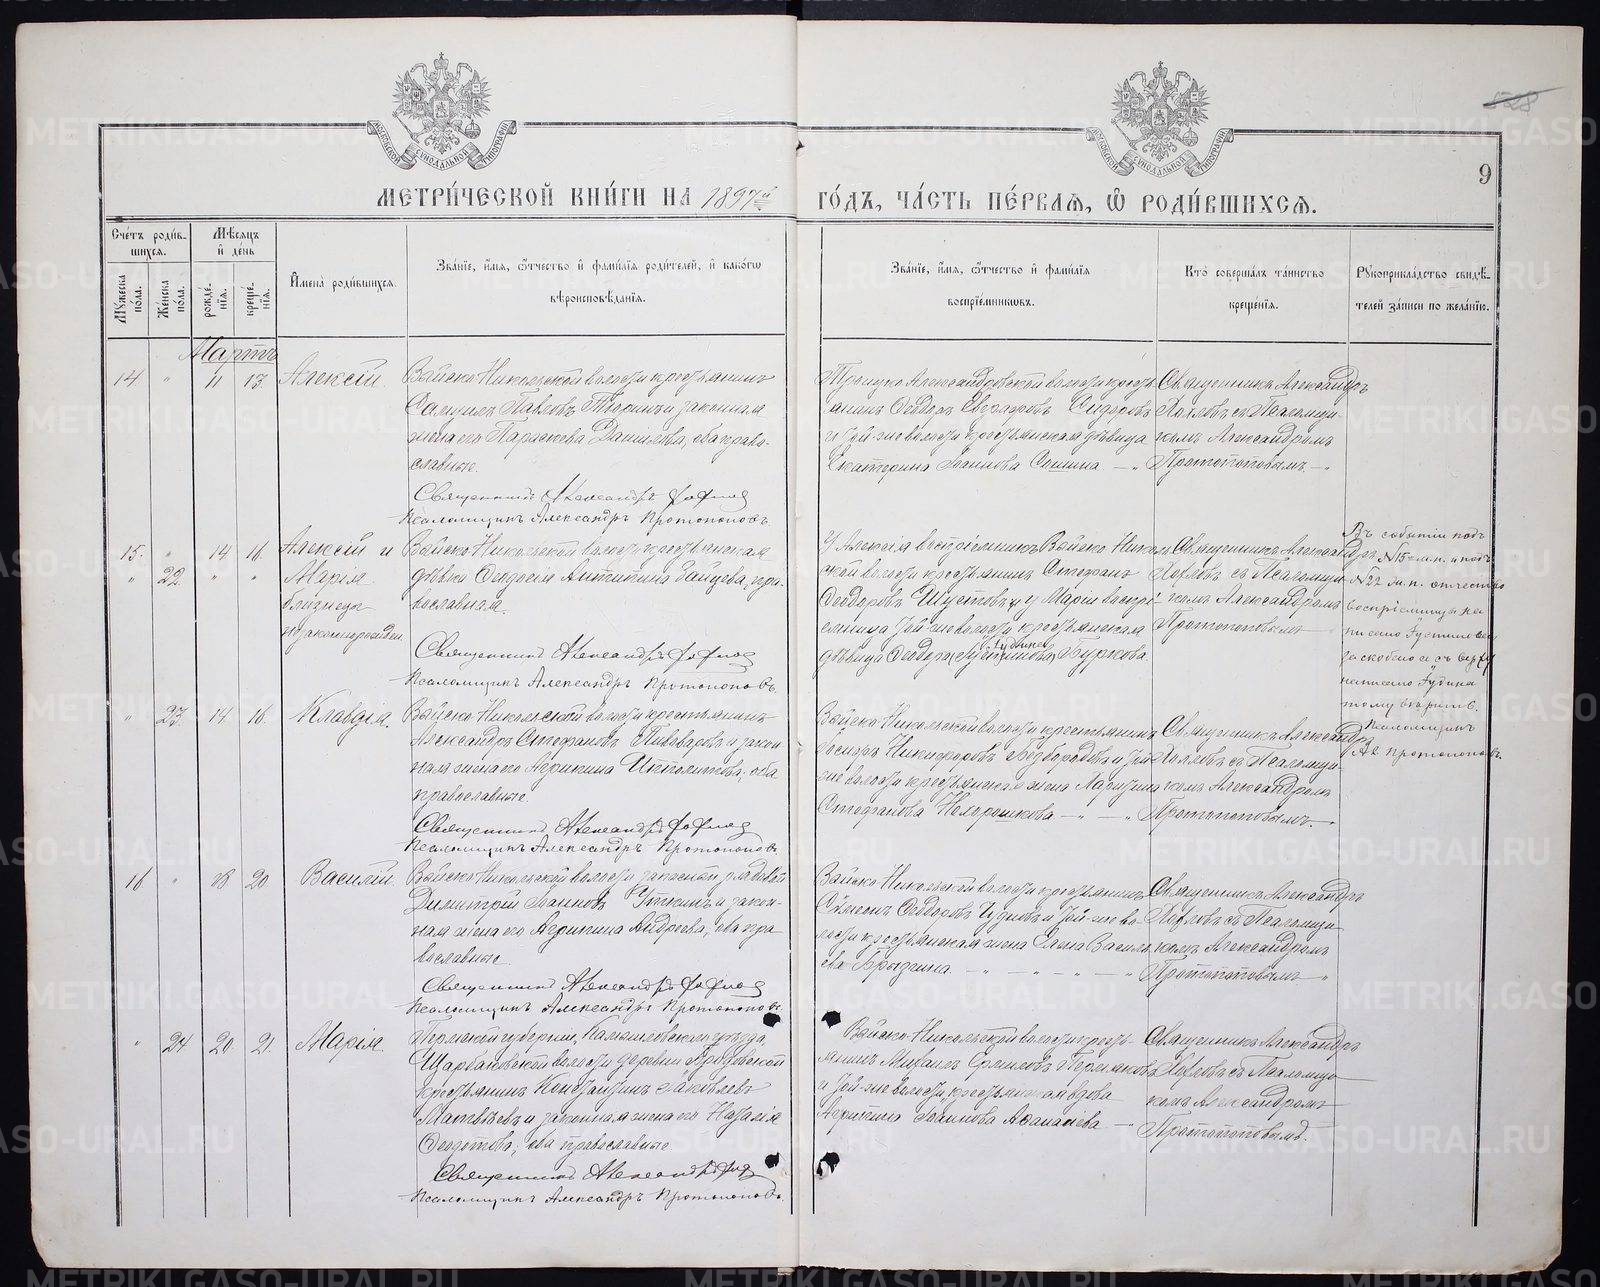 528
9
МЕТРИ́ЧЕСКОЙ КНИ́ГИ НА 1897й ГО́ДЪ, ЧА́СТЬ ПЕ́РВАѦ, Ѡ РОДИ́ВШИХСѦ.
МОСКОВСКОЙ СѴНОДАЛЬНОЙ ТИПОГРАФІИ
МОСКОВСКОЙ СѴНОДАЛЬНОЙ ТИПОГРАФІИ
Счетъ родив-
шихся.
Мѣсяцъ
и день
Мужеска пола.
Женска пола.
рожде-
нія.
креще-
нія.
Имена родившихся.
Званіе, имя, отчество и фамилія родителей, и какого
вѣроисповѣданія.
Званіе, имя, отчество и фамилія
воспріемниковъ.
Кто совершалъ таинство
крещенія.
Рукоприкладство свидѣ-
телей записи по желанію.
Мартъ
14 " 11 13. Алексій.
Войско Никольской волости крестьянинъ
Самуилъ Павловъ и законная
жена его Параскева Данилова, оба право-
славные.
Священникъ Александръ
Псаломщикъ Александръ Протопоповъ.
Троицко Александровской волости кресть-
янинъ Ѳеодоръ Евграфовъ Сидоровъ
и той-же волости крестьянская дѣвица
Екатерина Іоаннова Сошина — " —
Священникъ Александръ
Хохловъ съ Псаломщи-
комъ Александромъ
Протопоповымъ. — " —
15. " 14 16. Алексій и
" 22. " " Марія
близнецы
незаконнорожден.
Войско Никольской волости крестьянская
дѣвка Ѳеодосія Антипина Зайцева, пра-
вославная.
Священникъ Александръ
Псаломщикъ Александръ Протопоповъ.
У Алексія воспріемникъ Войско Николь-
ской волости крестьянинъ Стефанъ
Ѳеодоровъ Шустовъ, у Маріи воспрі-
емница той-же волости крестьянская
дѣвица Ѳеодора (Густинова) Гудина Буркова.
Священникъ Александръ
Хохловъ съ Псаломщи-
комъ Александромъ
Протопоповымъ
Въ событіи подъ
№15 м.п. и подъ
№22 ж.п. отчество
воспріемницы на-
писано Густинова
заскоблено а съ верху
написано Гудина
тому вѣрить.
Псаломщикъ
Ал. Протопоповъ.
" 23. 14. 16. Клавдія.
Войско Никольской волости крестьянинъ
Александръ Стефановъ Пивоваровъ и закон-
ная жена его Агрипина Ипполитова, оба
православные.
Священникъ Александръ
Псаломщикъ Александръ Протопоповъ.
Войско Никольской волости крестьянинъ
Никифоровъ Безбородовъ и той-
же волости крестьянская жена
Стефанова Нехорошкова — " — " —
Священникъ Александръ
Хохловъ съ Псаломщи-
комъ Александромъ
Протопоповымъ.
16. " 18 20. Василій.
Войско Никольской волости запасный рядовой
Димитрій Іоанновъ Уткинъ и закон-
ная жена его Агрипина Андреева, оба пра-
вославные.
Священникъ Александръ
Псаломщикъ Александръ Протопоповъ.
Войско Никольской волости крестьянинъ
Симеонъ Ѳеодоровъ Чудновъ и той-же во-
лости крестьянская жена Елена Василь-
ева Брызгина. — " — " — " — "
Священникъ Александръ
Хохловъ съ Псаломщи-
комъ Александромъ
Протопоповымъ "
" 24 20 21. Марія.
Пермской губерніи, Камышловскаго уѣзда,
Щарбаковской волости деревни
крестьянинъ Константинъ Яковлевъ
Матвѣевъ и законная жена его Наталія
Ѳеодотова, оба православные.
Священникъ Александръ
Псаломщикъ Александръ Протопоповъ.
Войско-Никольской волости кресть-
янинъ Михаилъ Ермиловъ Пермяковъ
и той-же волости, крестьянская вдова
Агрипина Іоаннова Аѳанасіева — " —
Священникъ Александръ
Хохловъ съ Псаломщи-
комъ Александромъ
Протопоповымъ.
METRIKI.GASO-URAL.RU